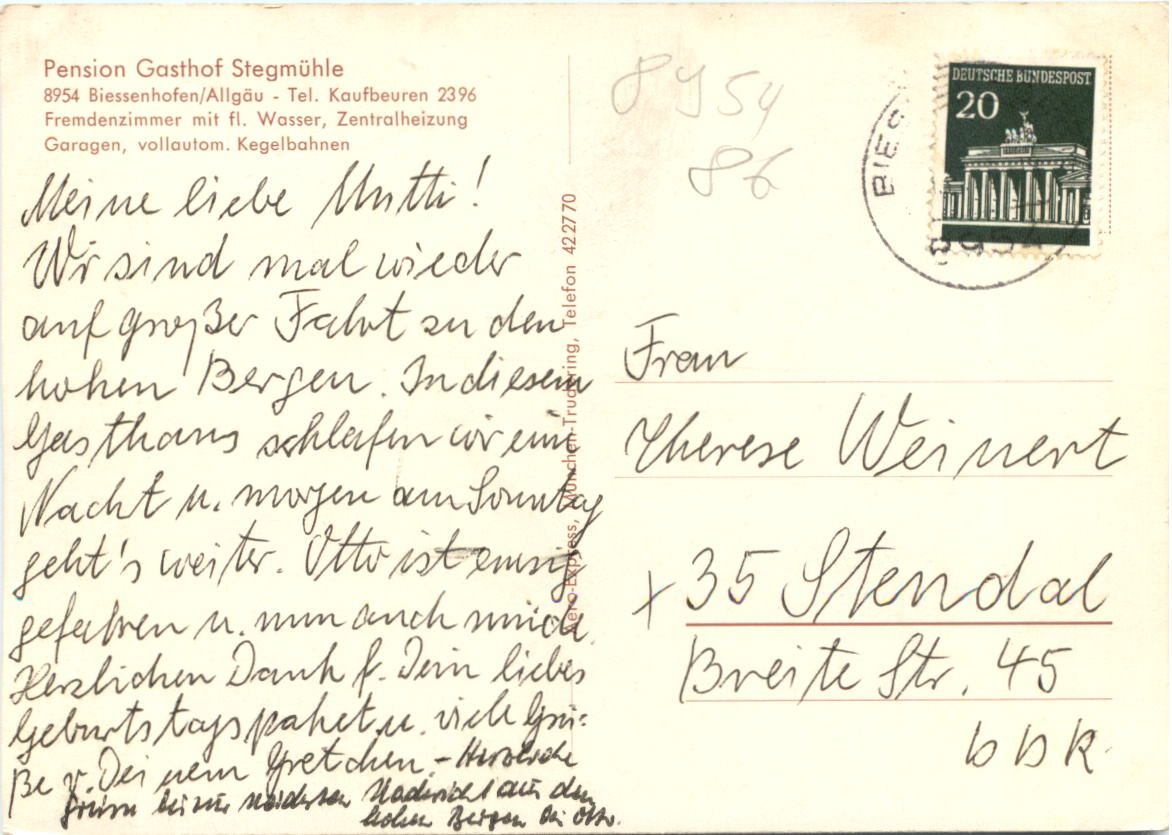 Pension Gasthof Stegmühle
8954 Biessenhofen/Allgäu - Tel. Kaufbeuren 2396
Fremdenzimmer mit fl. Wasser, Zentralheizung
Garagen, vollautom. Kegelbahnen
Meine liebe Mutti!
Wir sind mal wieder
auf großer Fahrt zu den
hohen Bergen. In diesem
Gasthaus schlafen wir eine
Nacht u. morgen am Sonntag
geht's weiter. Otto ist emsig
gefahren u. nun auch müde.
Herzlichen Dank f. Dein liebes
Geburtstagspaket u. viele Grü-
ße v. Deinem Gretchen. - Herzliche
Grüße bis zur nächsten Nachricht aus den
hohen Bergen Dei Otto.
Aero-Express, München-Trudering, Telefon 422770
8954
86
BIES
8954
DEUTSCHE BUNDESPOST
20
Frau
Therese Weinert
x 35 Stendal
Breite Str. 45
DDR.